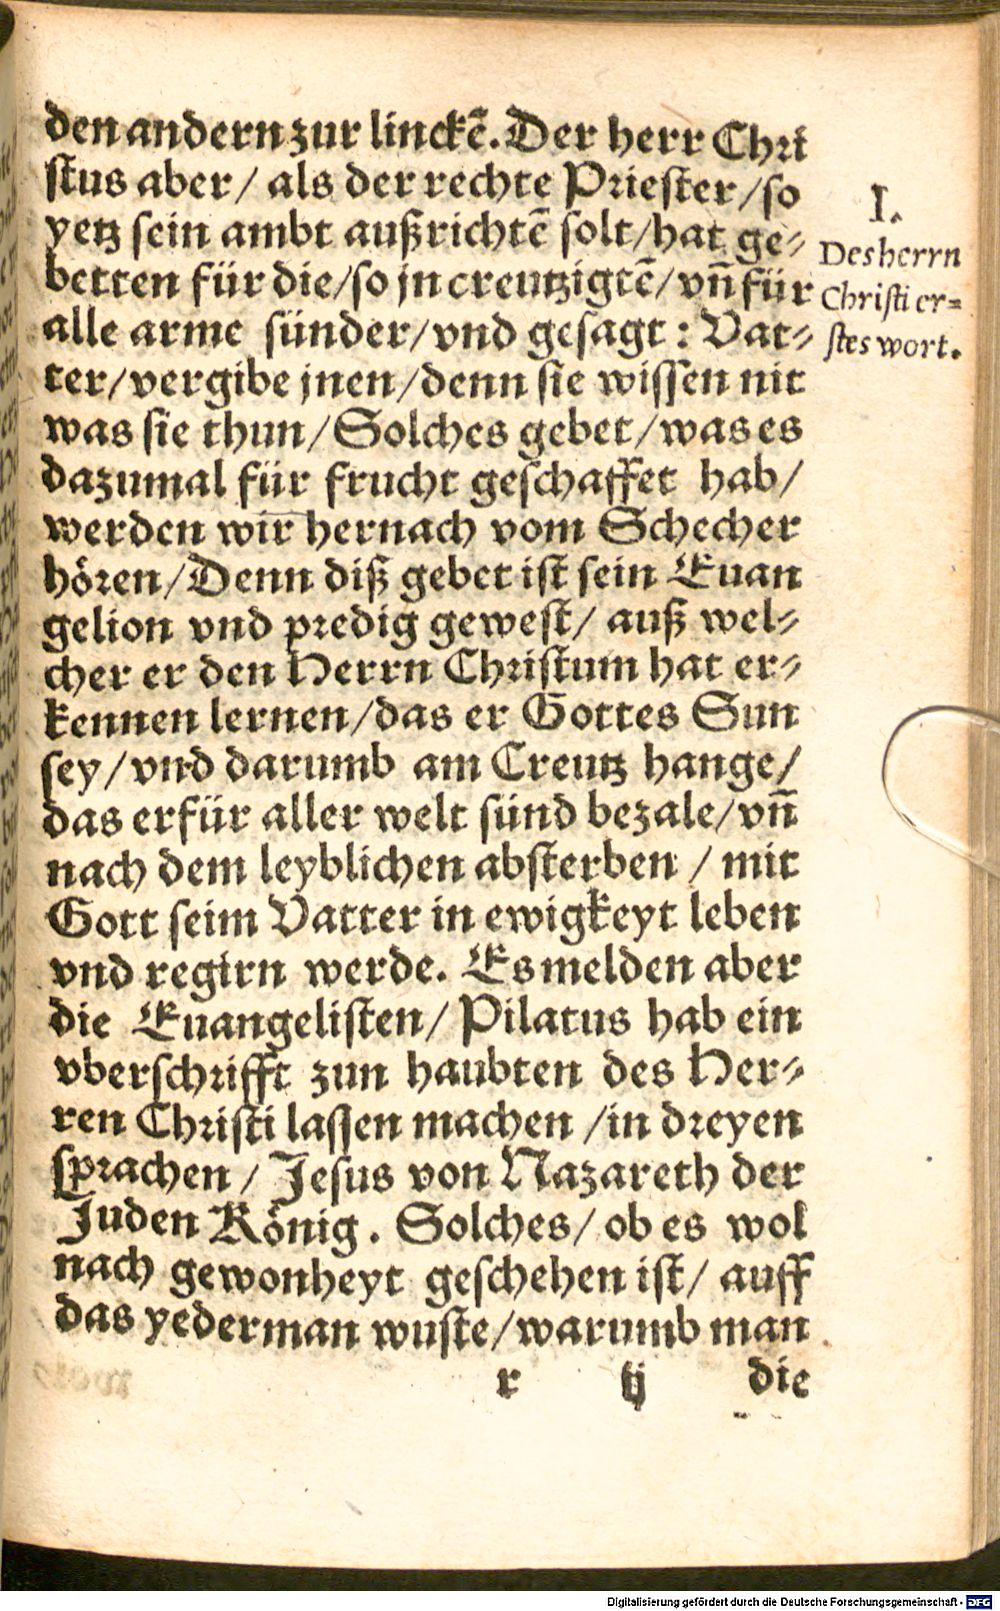 den andern zur linckẽ. Der herr Chri
stus aber / als der rechte Priester / so
yetz sein ambt außrichtẽ solt / hat ge-
betten für die / so jn creutzigtẽ / vñ für
alle arme sünder / vnd gesagt : Vat-
ter / vergibe jnen / denn sie wissen nit
was sie thun / Solches gebet / was es
dazumal für frucht geschaffet hab /
werden wir hernach vom Schecher
hören / Denn diß gebet ist sein Euan
gelion vnd predig gewest / auß wel-
cher er den Herrn Christum hat er-
kennen lernen / das er Gottes Sun
sey / vnd darumb am Creutz hange /
das er für aller welt sünd bezale / vñ
nach dem leyblichen absterben / mit
Gott seim Vatter in ewigkeyt leben
vnd regirn werde. Es melden aber
die Euangelisten / Pilatus hab ein
vberschrifft zun haubten des Her-
ren Christi lassen machen / in dreyen
sprachen / Jesus von Nazareth der
Juden König. Solches / ob es wol
nach gewonheyt geschehen ist / auff
das yederman wuste / warumb man
r ij die
I.
Des herrn
Christi er-
stes wort.
Digitalisierung gefördert durch die Deutsche Forschungsgemeinschaft - DFG